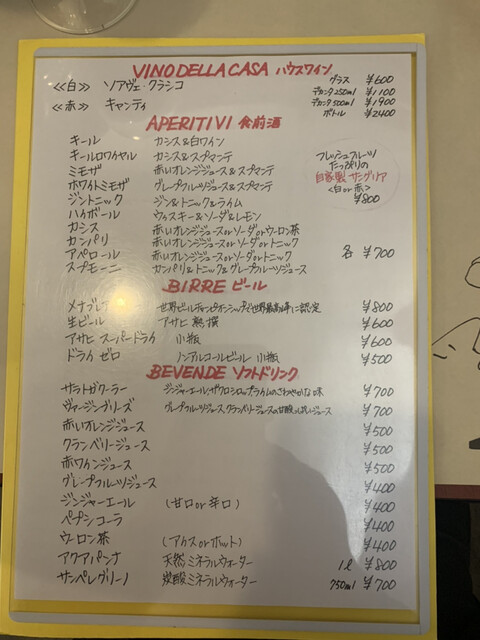 VINO DELLA CASA ハウスワイン
≪白≫ ソアヴェ・クラシコ
≪赤≫ キャンティ
グラス ¥600
デカンタ 250ml ¥1100
デカンタ 500ml ¥1900
ボトル ¥2400
APERITIVI 食前酒
キール カシス&白ワイン
キールロワイヤル カシス&スプマンテ
ミモザ 赤いオレンジジュース&スプマンテ
ホワイトミモザ グレープフルーツジュース&スプマンテ
ジントニック ジン&トニック&ライム
ハイボール ウィスキー&ソーダ&レモン
カシス 赤いオレンジジュースorソーダorウーロン茶
カンパリ 赤いオレンジジュースorソーダorトニック
アペロール 赤いオレンジジュースorソーダorトニック
スプモーニ カンパリ&トニック&グレープフルーツジュース
各 ¥700
フレッシュフルーツ
たっぷりの
自家製サングリア
<白or赤>
¥800
BIRRE ビール
メナブレア 世界ビールチャンピオンシップで世界最高水準に認定 ¥800
生ビール アサヒ 熟撰 ¥600
アサヒ スーパードライ 小瓶 ¥600
ドライ ゼロ ノンアルコールビール 小瓶 ¥500
BEVENDE ソフトドリンク
サラトガクーラー ジンジャーエール、ザクロシロップ、ライムのさわやかな味 ¥700
ヴァージンブリーズ グレープフルーツジュース、クランベリージュースの甘酸っぱいジュース ¥700
赤いオレンジジュース ¥500
クランベリージュース ¥500
赤ワインジュース ¥500
グレープフルーツジュース ¥400
ジンジャーエール (甘口or辛口) ¥400
ペプシコーラ ¥400
ウーロン茶 (アイスorホット) ¥400
アクアパンナ 天然ミネラルウォーター 1ℓ ¥800
サンペレグリーノ 炭酸ミネラルウォーター 750ml ¥700